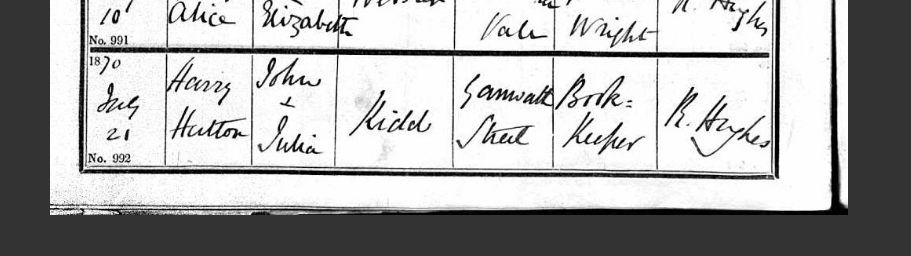 10
Alice
Elizabeth
Vale
Wright
R. Hughes
No. 991
1870
July
21
No. 992
Harry
Hutton
John
+
Julia
Kidd
Street
Book=
Keeper
R. Hughes